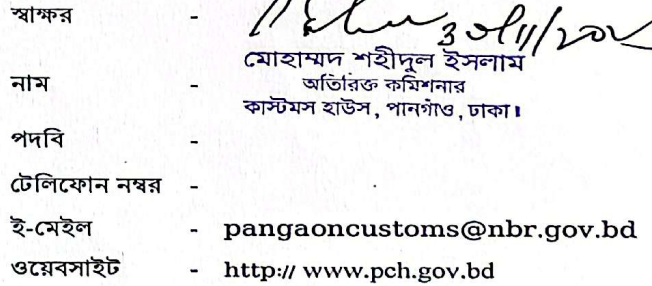 স্বাক্ষর -
মোহাম্মদ শহীদুল ইসলাম
নাম - অতিরিক্ত কমিশনার
কাস্টমস হাউস, পানগাঁও, ঢাকা।
পদবি -
টেলিফোন নম্বর -
ই-মেইল - pangaoncustoms@nbr.gov.bd
ওয়েবসাইট - http:// www.pch.gov.bd